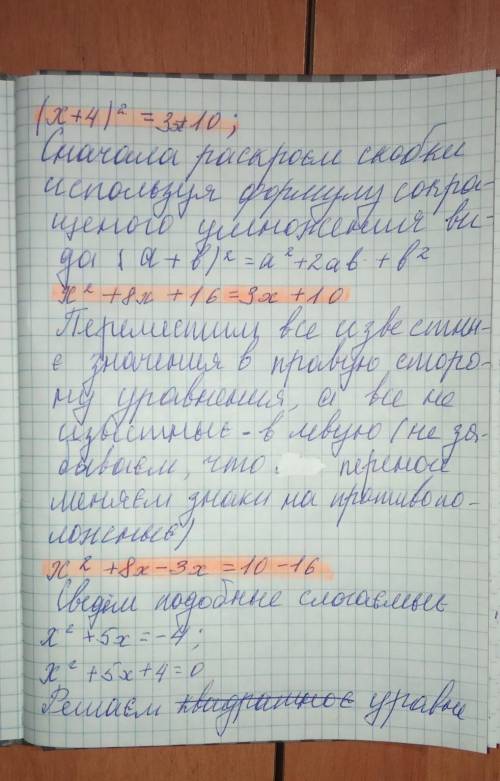 (x+4)² = 3x+10;
Сначала раскроем скобки
используя формулу сокра-
щеного умножения ви-
да (a+b)² = a²+2ab+b²
x²+8x+16=3x+10
Переместим все известны-
е значения в правую сторо-
ну уравнения, а все не
извыстные - в левую (не за-
бываем, что перенос
меняем знаки на противопо-
ложные)
x²+8x-3x=10-16
Сведём подобные слогаемые
x²+5x=-4;
x²+5x+4=0
Решаем квадратное уравне